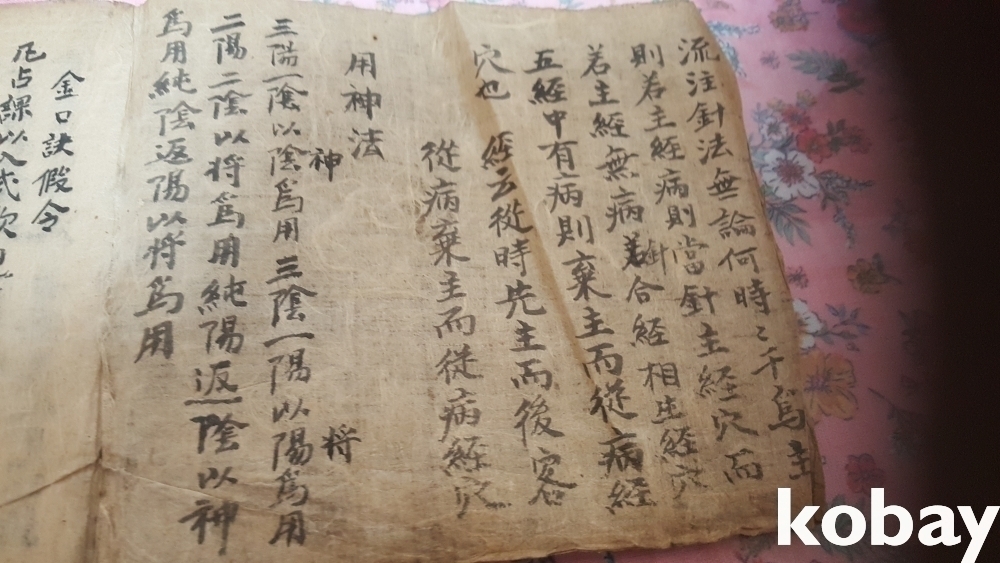 流注針法無論何時〻干爲主
則若主經病則當針主經穴而
若主經無病若針合經相生經穴
五經中有病則棄主而從病經
穴也　經云從時先主而後客
從病棄主而從病經穴
用神法
神　將
三陽一陰以陰爲用　三陰一陽以陽爲用
二陽二陰以將爲用純陽返陰以神
爲用純陰返陽以將爲用
金口訣假令
凡占課以入式次
kobay